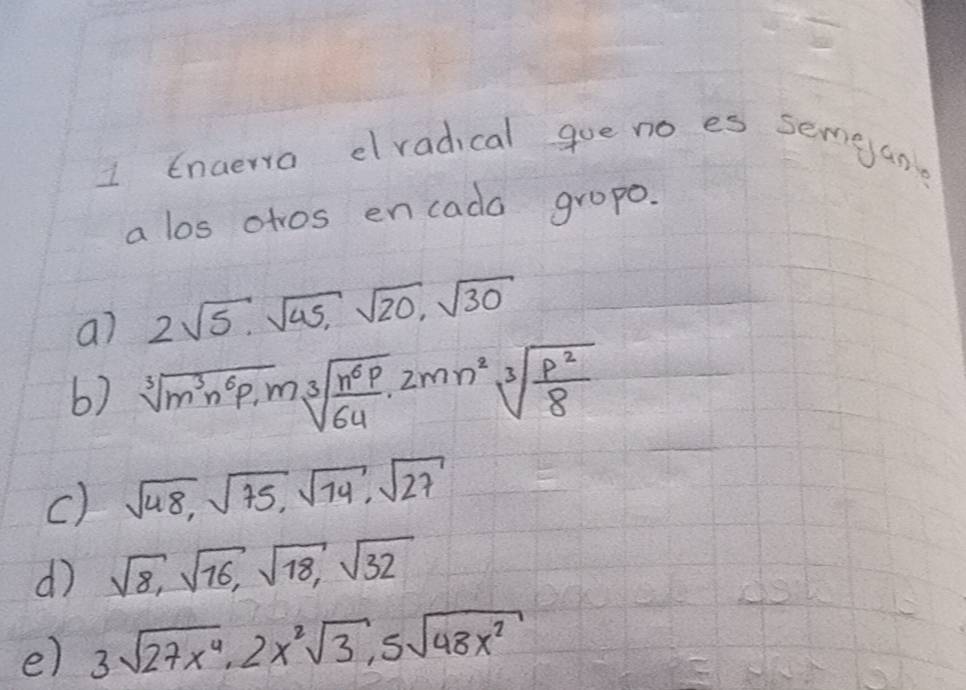 1 Encierra el radical que no es semejante
a los otros en cada grupo.
a) 2√5, √45, √20, √30
b) ∛(m³n⁶p), m∛(n⁶p/64), 2mn² ∛(p²/8)
c) √48, √75, √14, √27
d) √8, √16, √18, √32
e) 3√(27x⁴), 2x²√3, 5√(48x²)